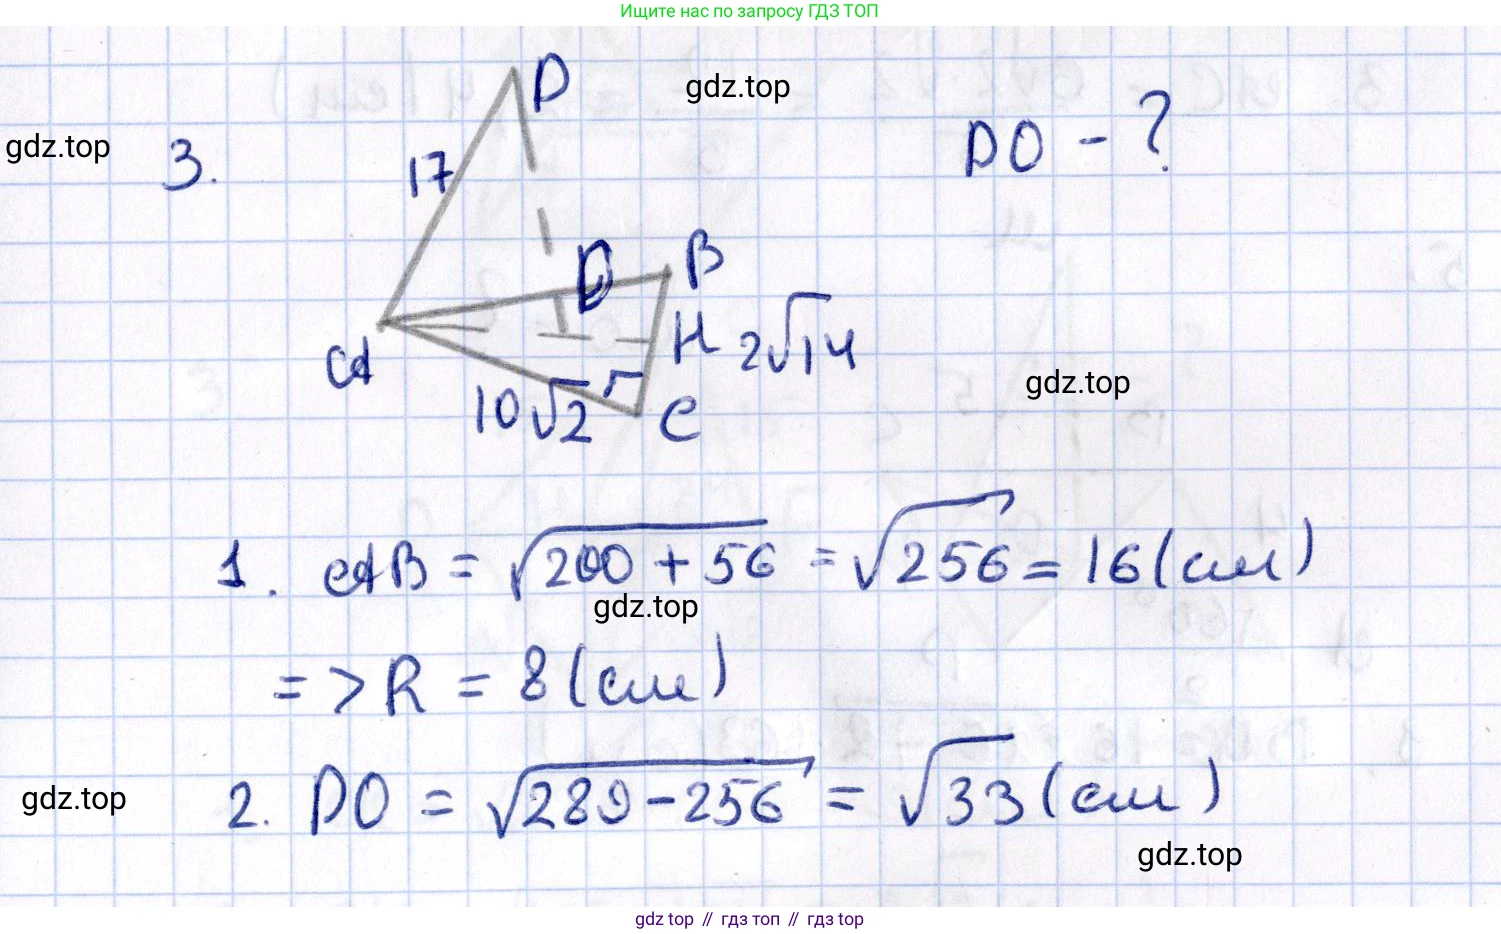 Ищите нас по запросу ГДЗ ТОП
D
gdz.top
DO - ?
gdz.top
3.
17
B
H
2√14
A
gdz.top
10√2
C
1. AB = √200 + 56 = √256 = 16 (см)
gdz.top
=> R = 8 (см)
gdz.top
2. DO = √289 - 256 = √33 (см)
gdz.top
gdz top // гдз топ // гдз top